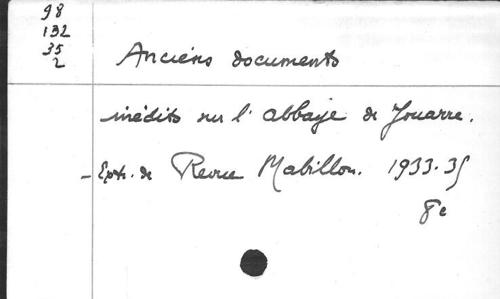 98
132
35
2
Anciens documents
inédits sur l'abbaye de Jouarre.
- Extr. de Revue Mabillon. 1933-35
8e